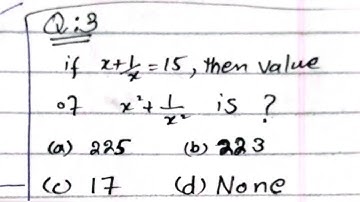 Q:3
if x+1/x=15, then value
of x²+1/x² is ?
(a) 225 (b) 223
(c) 17 (d) None